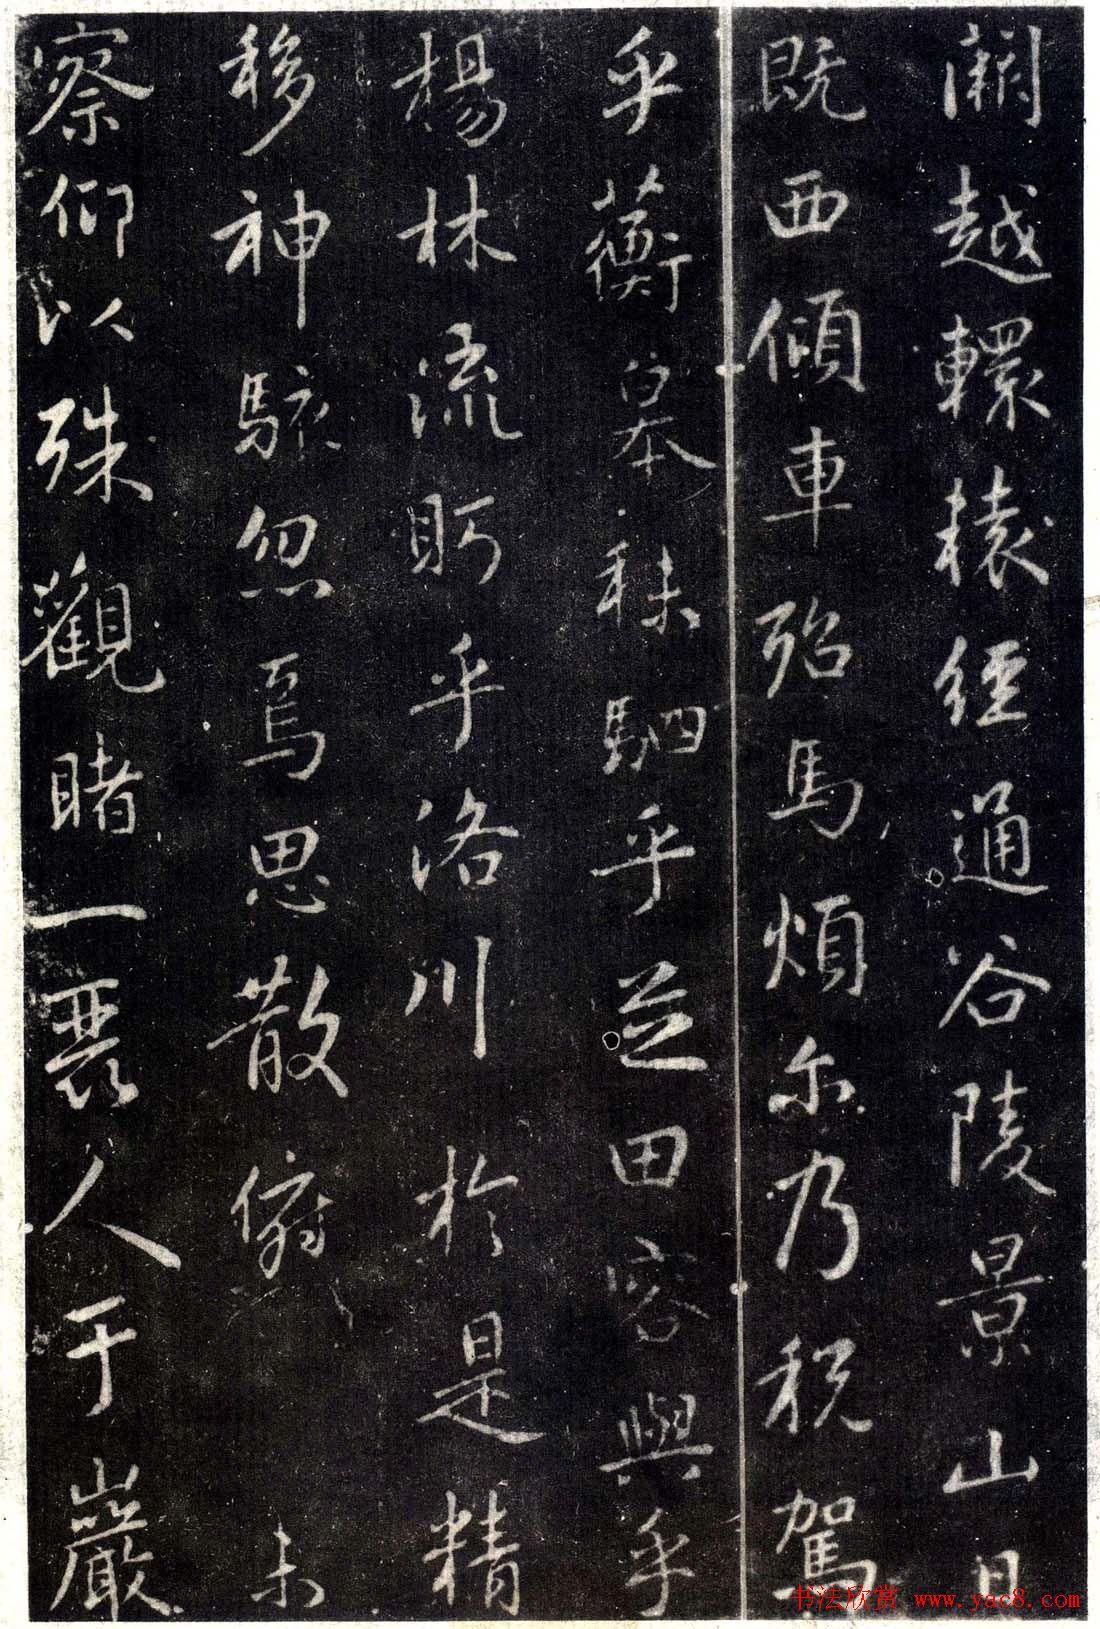 闌越轘轅經通谷陵景山日
既西傾車殆馬煩尔乃税駕
乎蘅皋秣駟乎芝田容與乎
楊林流眄乎洛川於是精
移神駭忽焉思散俯未
察仰以殊觀睹一麗人于巖
书法欣赏 www.yac8.com